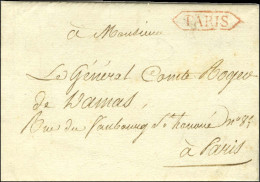 PARIS
à Monsieur
Le Général Comte Roger
de Damas,
Rue du faubourg St honoré n°
à Paris